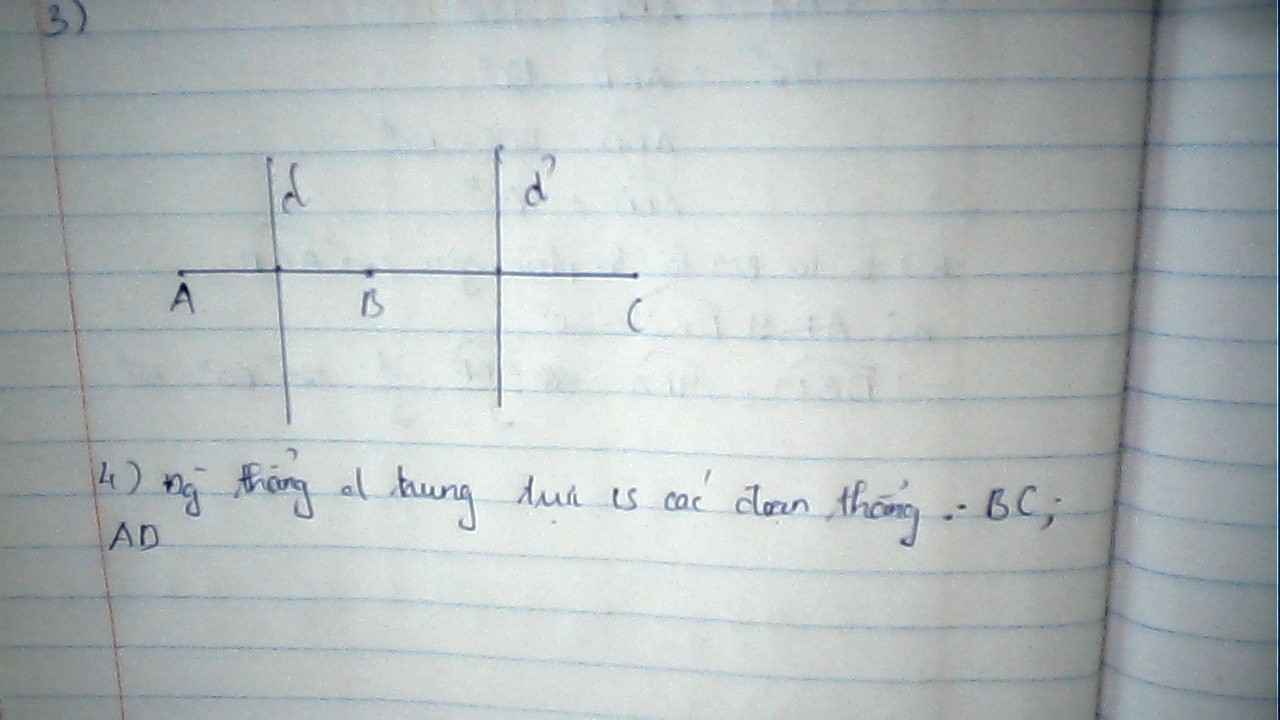 3)
d d'
A B C
4) ng thẳng d trung trực is các đoạn thẳng : BC;
AD